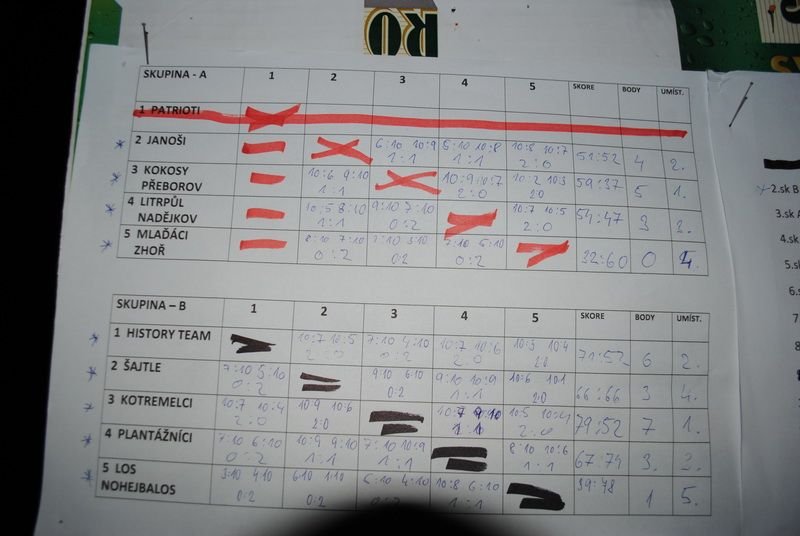 RO
SKUPINA - A 1 2 3 4 5 SKORE BODY UMÍST.
1 PATRIOTI
2 JANOŠI 6:10 10:9 5:10 10:8 10:8 10:7 51:52 4 2.
1:1 1:1 2:0
3 KOKOSY 10:6 9:10 10:9 10:7 10:2 10:3 59:37 5 1.
PŘEBOROV 1:1 2:0 2:0
4 LITRPŮL 10:5 8:10 9:10 7:10 10:7 10:5 54:47 3
NADĚJKOV 1:1 0:2 2:0
5 MLAĎÁCI 8:10 7:10 2:10 3:10 7:10 5:10 32:60 0 4.
ZHOŘ 0:2 0:2 0:2
SKUPINA – B 1 2 3 4 5 SKORE BODY UMÍST.
1 HISTORY TEAM 10:7 10:5 7:10 4:10 10:7 10:6 10:3 10:4 71:52 6 2.
2:0 0:2 2:0 2:0
2 ŠAJTLE 7:10 5:10 9:10 6:10 9:10 10:9 10:6 10:1 66:66 3 4.
0:2 0:2 1:1 2:0
3 KOTREMELCI 10:7 10:4 10:9 10:6 10:7 9:10 10:5 10:4 79:52 7 1.
2:0 2:0 1:1 2:0
4 PLANTÁŽNÍCI 7:10 6:10 10:9 9:10 7:10 10:9 8:10 10:6 67:74 3. 3.
0:2 1:1 1:1 1:1
5 LOS 3:10 4:10 6:10 1:10 5:10 4:10 10:8 6:10 39:78 1 5.
NOHEJBALOS 0:2 0:2 0:2 1:1
2.sk B
3.sk A
4.sk
5.sk
6.s
7
8